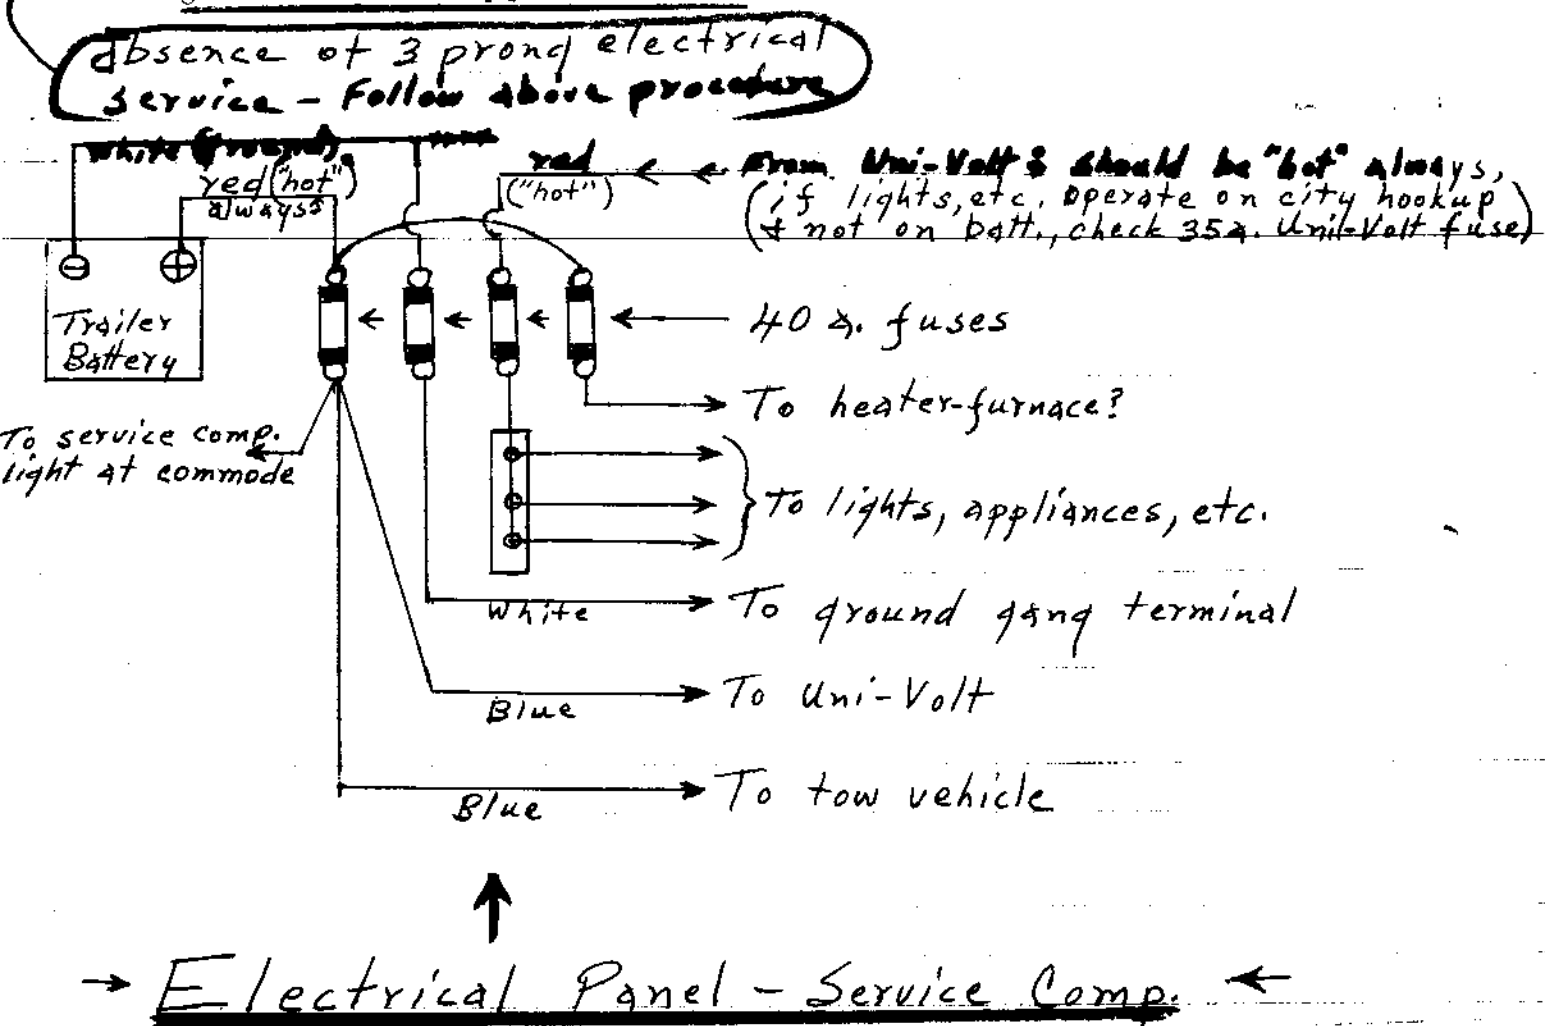 absence of 3 prong electrical
service - Follow above procedure
white (ground)
red ("hot")
always
red
("hot")
From Uni-Volt & should be "hot" always,
(if lights, etc. operate on city hookup
& not on batt., check 35a. Uni-Volt fuse)
- +
Trailer
Battery
40 a. fuses
To heater-furnace?
To service comp.
light at commode
To lights, appliances, etc.
White To ground gang terminal
Blue To Uni-Volt
Blue To tow vehicle
Electrical Panel - Service Comp.